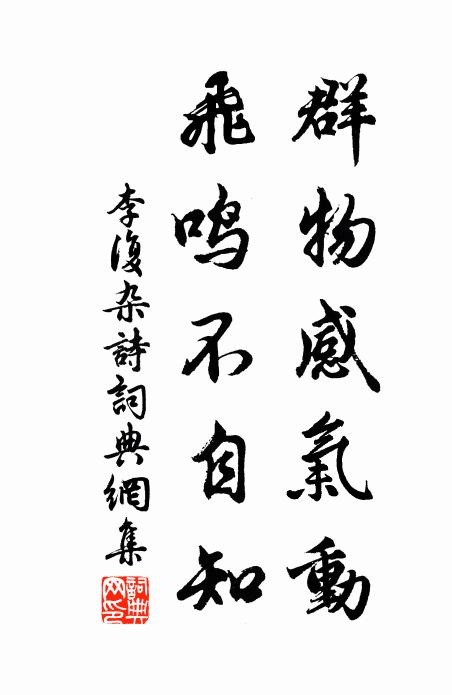 群物感氣動
飛鳴不自知
李復杂詩詞典網集
詞典
网印